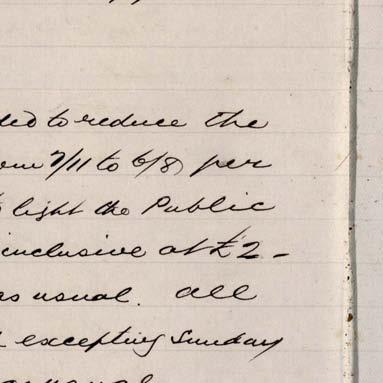 to reduce the
7/11 to 6/8 per
light the Public
inclusive at £2-
as usual. All
excepting Sunday